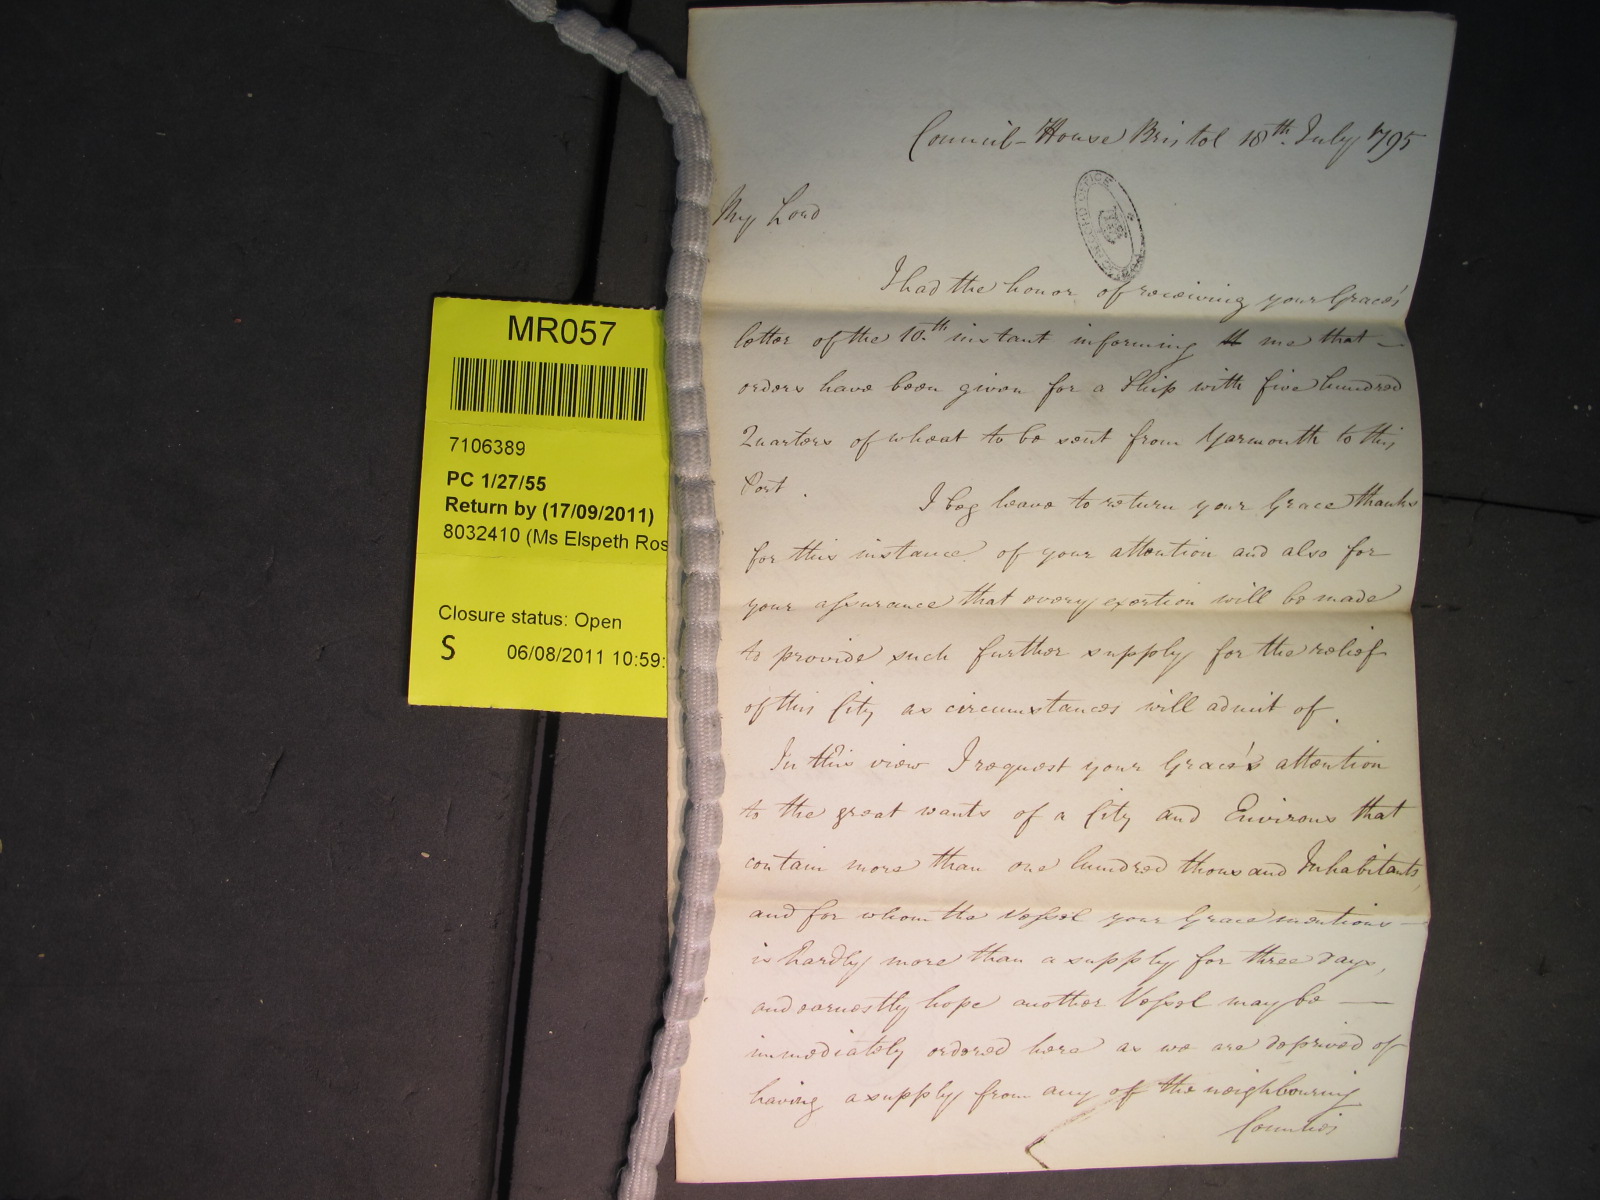 MR057
7106389
PC 1/27/55
Return by (17/09/2011)
8032410 (Ms Elspeth Ros
Closure status: Open
S 06/08/2011 10:59:
Council-House Bristol 18th. July 1795
My Lord
I had the honor of receiving your Grace's
letter of the 10.th instant informing me that
orders have been given for a Ship with five hundred
Quarters of wheat to be sent from Yarmouth to this
Port. I beg leave to return your Grace thanks
for this instance of your attention and also for
your assurance that every exertion will be made
to provide such further supply for the relief
of this City as circumstances will admit of.
In this view I request your Grace's attention
to the great wants of a City and Environs that
contain more than one hundred thousand Inhabitants,
and for whom the Vessel your Grace mentions
is hardly more than a supply for three days,
and earnestly hope another Vessel may be
immediately ordered here as we are deprived of
having a supply from any of the neighbouring
Counties